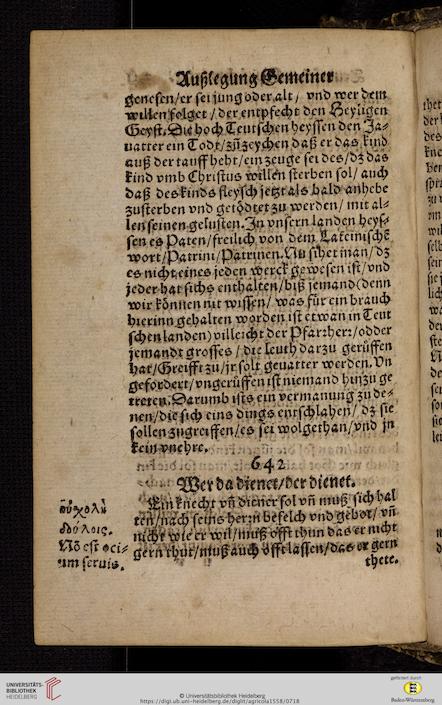 Außlegung Gemeiner
genesen/er sei jung oder alt/ vnd wer dem
willen folget/der entpfecht den Heyligen
Geyst. Die hoch Teutschen heyssen den Ja-
uatter ein Todt/zůzeychen daß er das kind
auß der tauff hebt/ein zeuge sei des/dz das
kind vmb Christus willen sterben sol/ auch
daß des kinds fleysch jetzt als bald anhebe
zusterben vnd getödtet zu werden/ mit al-
len seinen gelusten. In vnsern landen heys-
sen es Paten/freilich von dem Lateinischē
wort/Patrini/Patrinen. Nu sihet man/dz
es nicht eines jeden werck gewesen ist/vnd
jeder hat sichs enthalten/biß jemand (denn
wir können nit wissen/ was für ein brauch
hierinn gehalten worden ist etwan in Teut
schen landen) villeicht der Pfarzherr/odder
jemandt grosses / die leuth darzu gerüffen
hat/Greifft zu/jr solt geuatter werden. Vn
gefordert/vngerüffen ist niemand hinzu ge
tretten. Darumb ists ein vermanung zu de-
nen/die sich eins dings entschlahen/ dz sie
sollen zugreiffen/es sei wolgethan/vnd jn
kein vnehre.
642
Wer da dienet/der dienet.
Ein knecht vñ diener sol vñ muß sich hal
ten/nach seins herzn befelch vnd gebot/ vñ
nicht wie er wil/muß offt thun das er nicht
gern thut/muß auch offt lassen/das er gern
thete.
δούλοις.
Nō est oci-
um seruis.
UNIVERSITÄTS-
BIBLIOTHEK
HEIDELBERG
© Universitätsbibliothek Heidelberg
https://digi.ub.uni-heidelberg.de/diglit/agricola1558/0718
gefördert durch
Baden-Württemberg